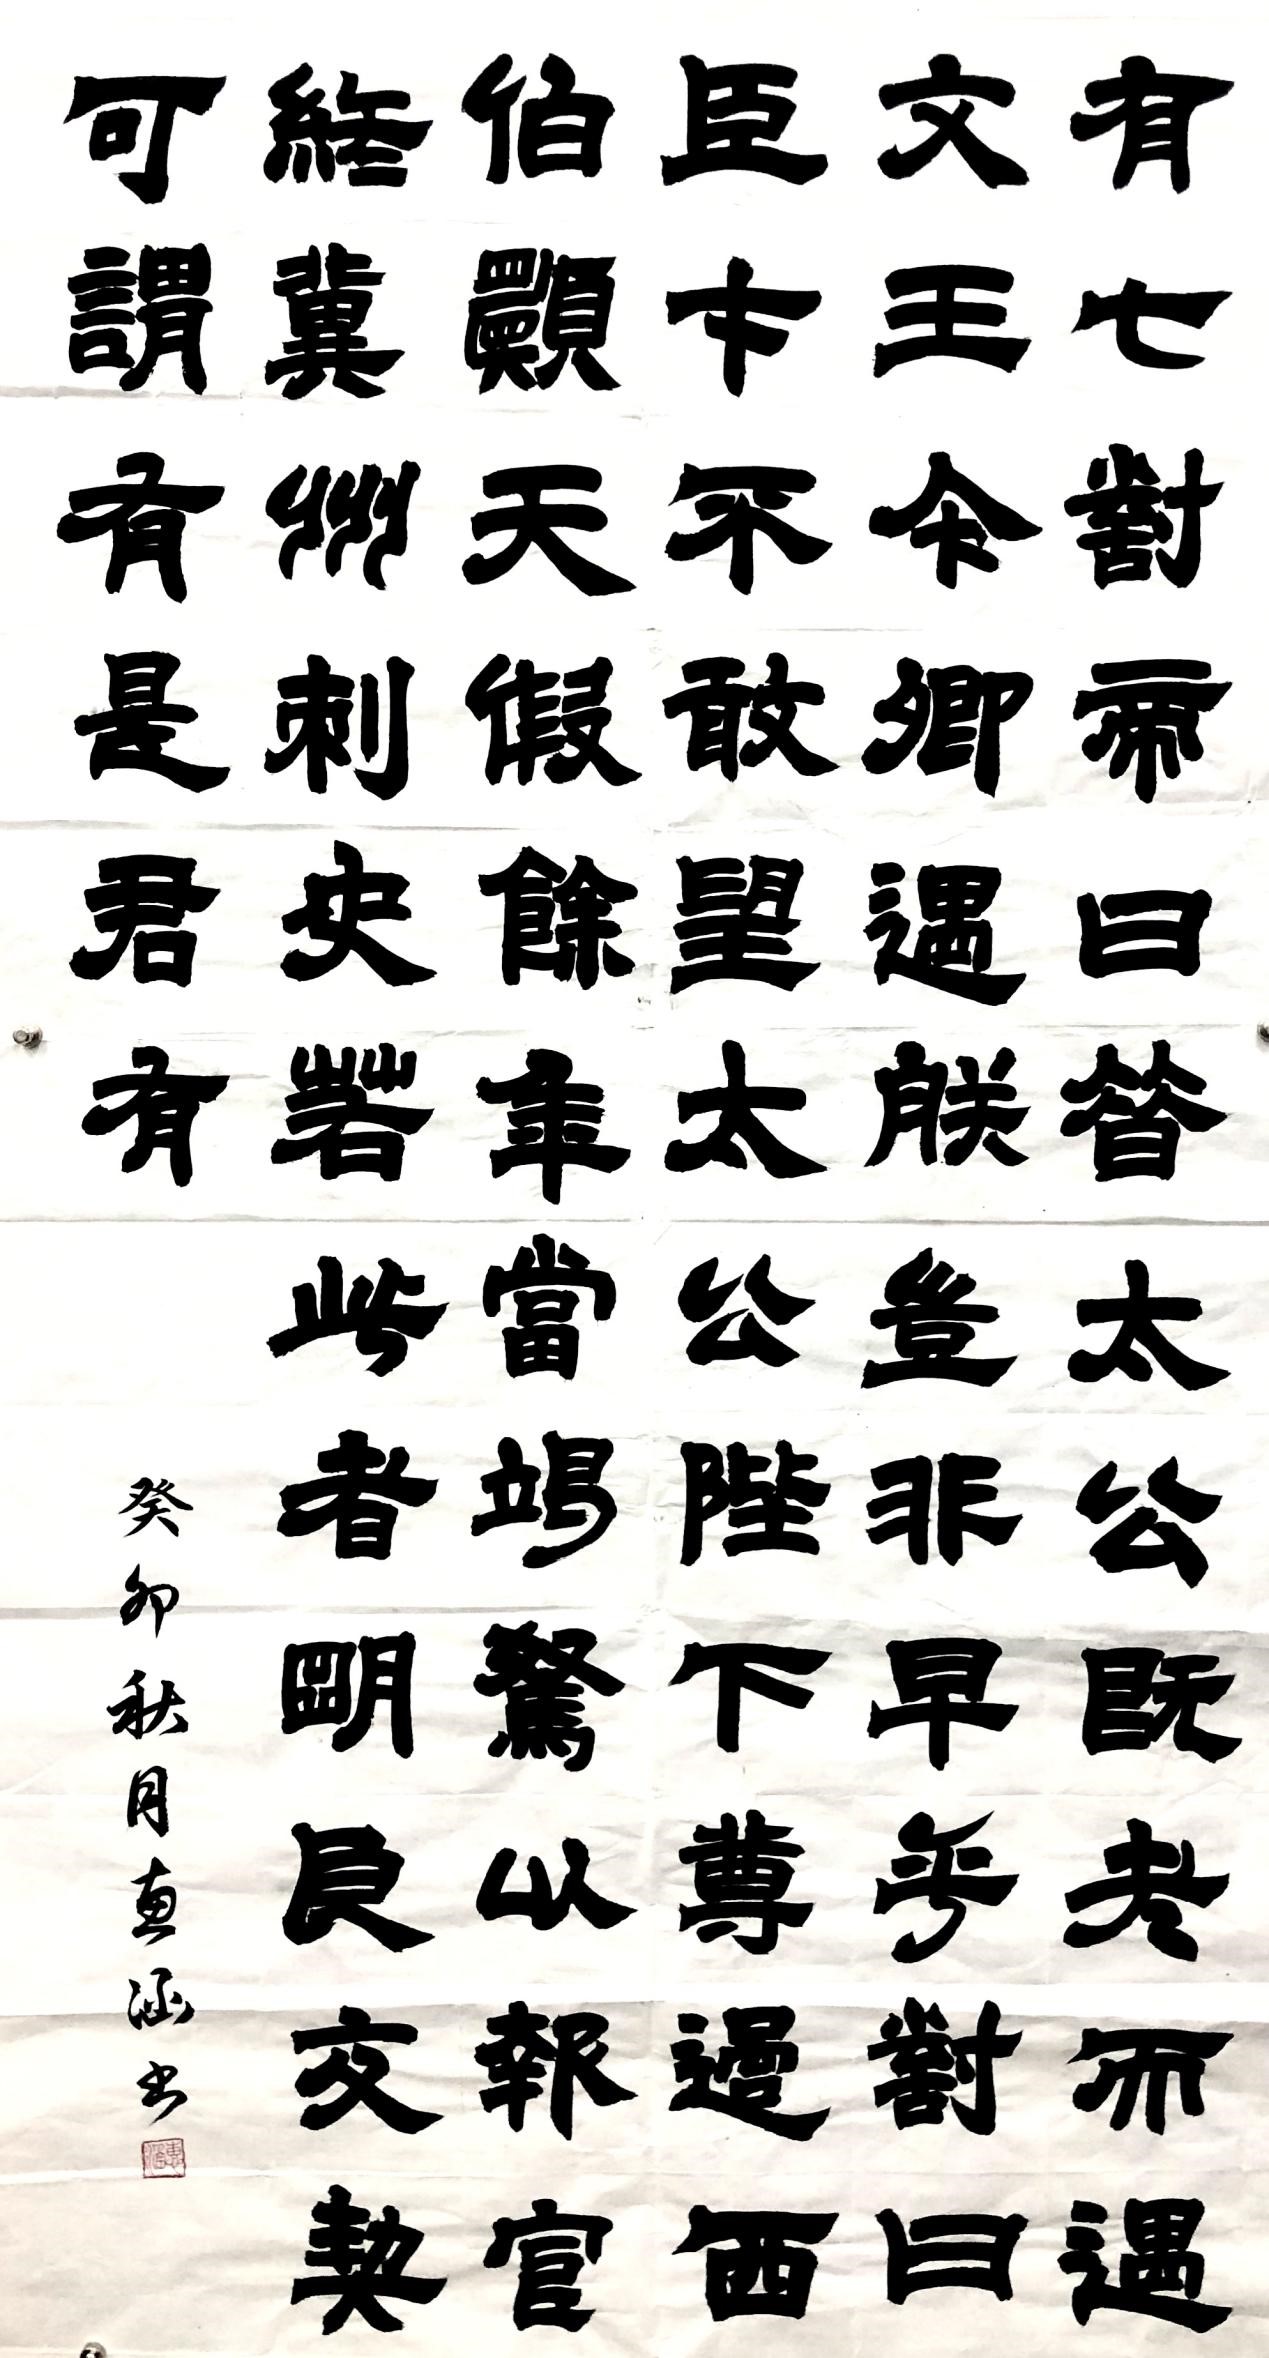 有七對帝曰昔太公既老而遇
文王今卿遇朕豈非早乎對曰
臣才不敢望太公陛下尊過西
伯願天假餘年當竭駑以報官
終冀州刺史若此者明良交契
可謂有是君有
癸卯秋月惠涵书
惠涵